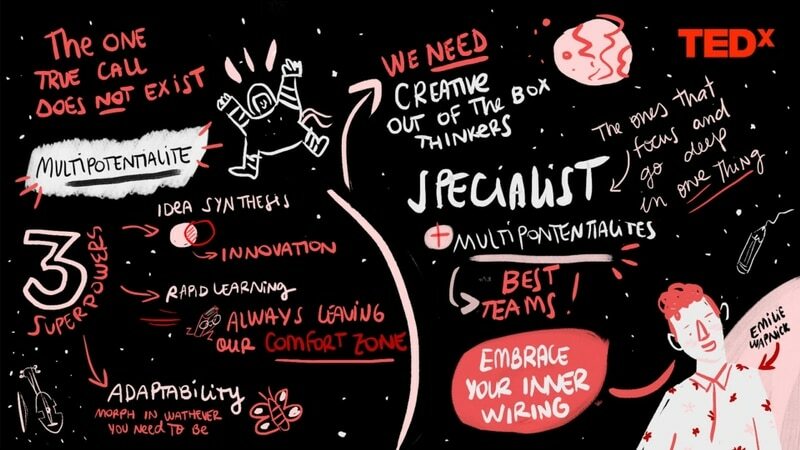 The ONE
TRUE CALL
DOES NOT EXIST
MULTIPOTENTIALITE
3
SUPERPOWERS
IDEA SYNTHESIS
INNOVATION
RAPID LEARNING
ALWAYS LEAVING
OUR COMFORT ZONE
ADAPTABILITY
MORPH IN WATHEVER
YOU NEED TO BE
WE NEED
CREATIVE
OUT OF THE BOX
THINKERS
TEDx
The ones that
focus and
go deep
in one thing
SPECIALIST
+ MULTIPONTENTIALITES
BEST
TEAMS!
EMBRACE
YOUR INNER
WIRING
EMILIE
WAPNICK